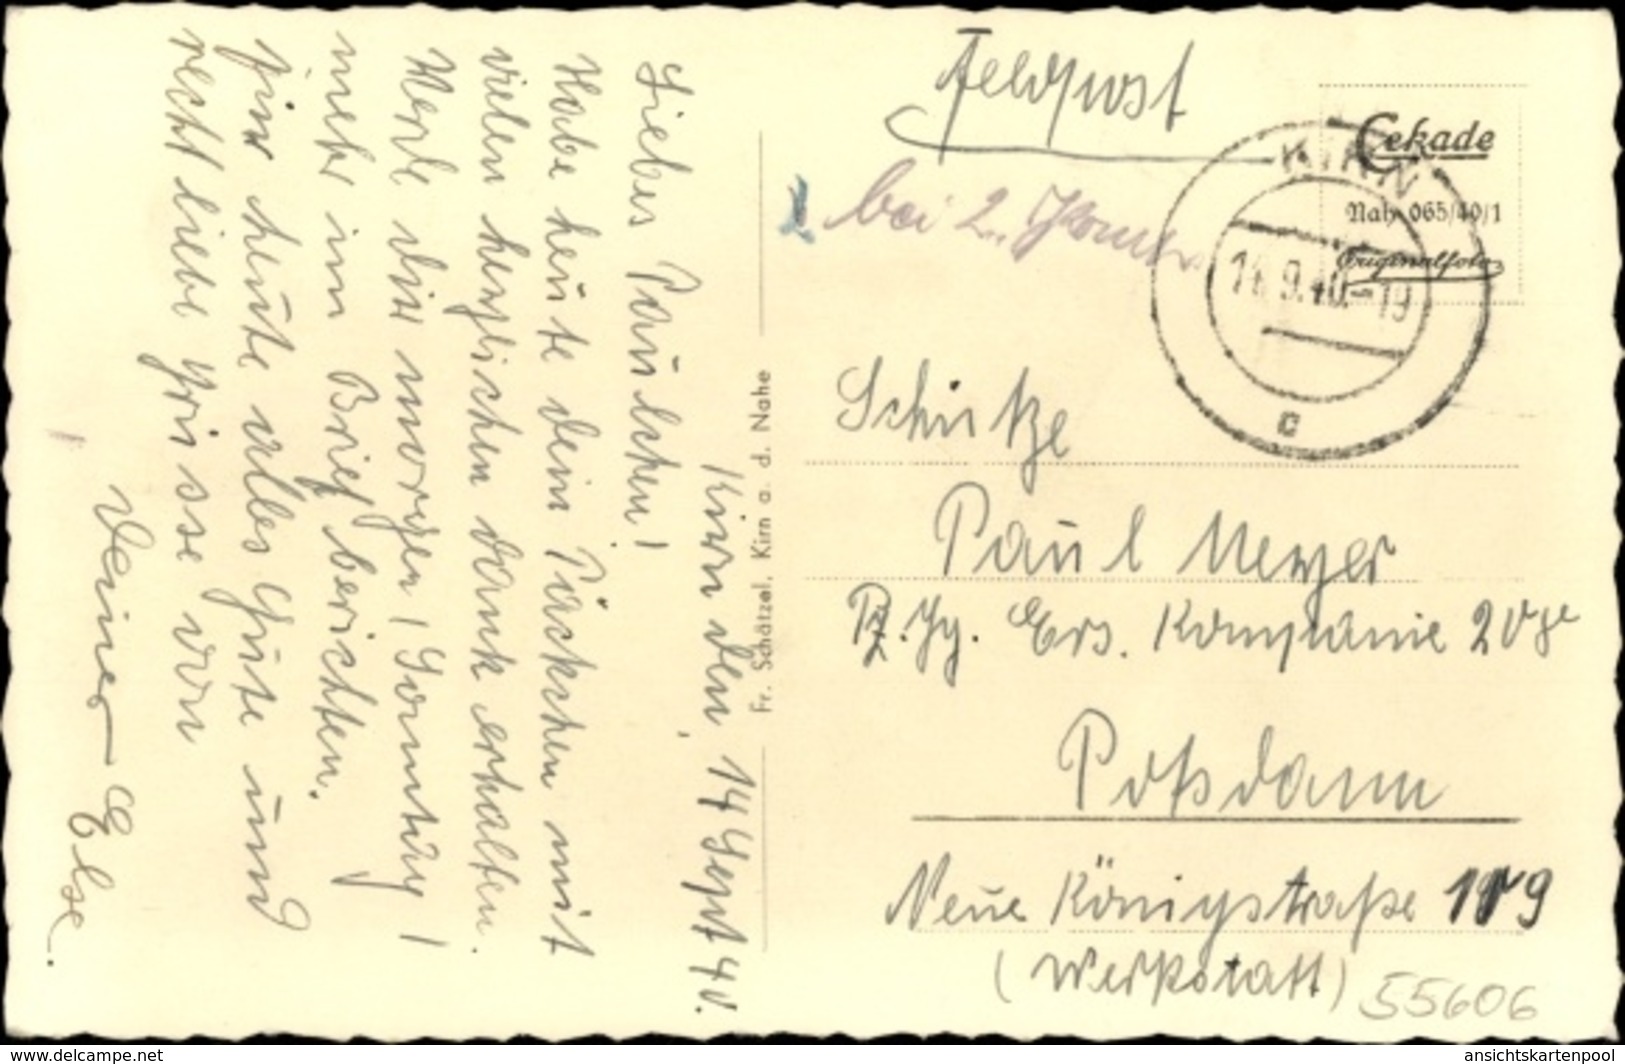 Kirn den, 14 Sept 40.
Liebes Paulchen!
Habe heute dein Päckchen mit
vielen herzlichen Dank erhalten.
Werde dir morgen (Sonntag)
mehr im Brief berichten.
Für heute alles Gute und
recht liebe Grüsse von
Deiner Else.
Fr. Schätzel, Kirn a. d. Nahe
Feldpost
bei 2.
Cekade
Nahe 065/40/1
Originalfoto
KIRN
9.40.-19
c
Schütze
Paul Meyer
Pz. Jg. Ers. Kompanie
Poßdam
Neue Königstraße 119
(Werkstatt)
55606
www.delcampe.net
ansichtskartenpool